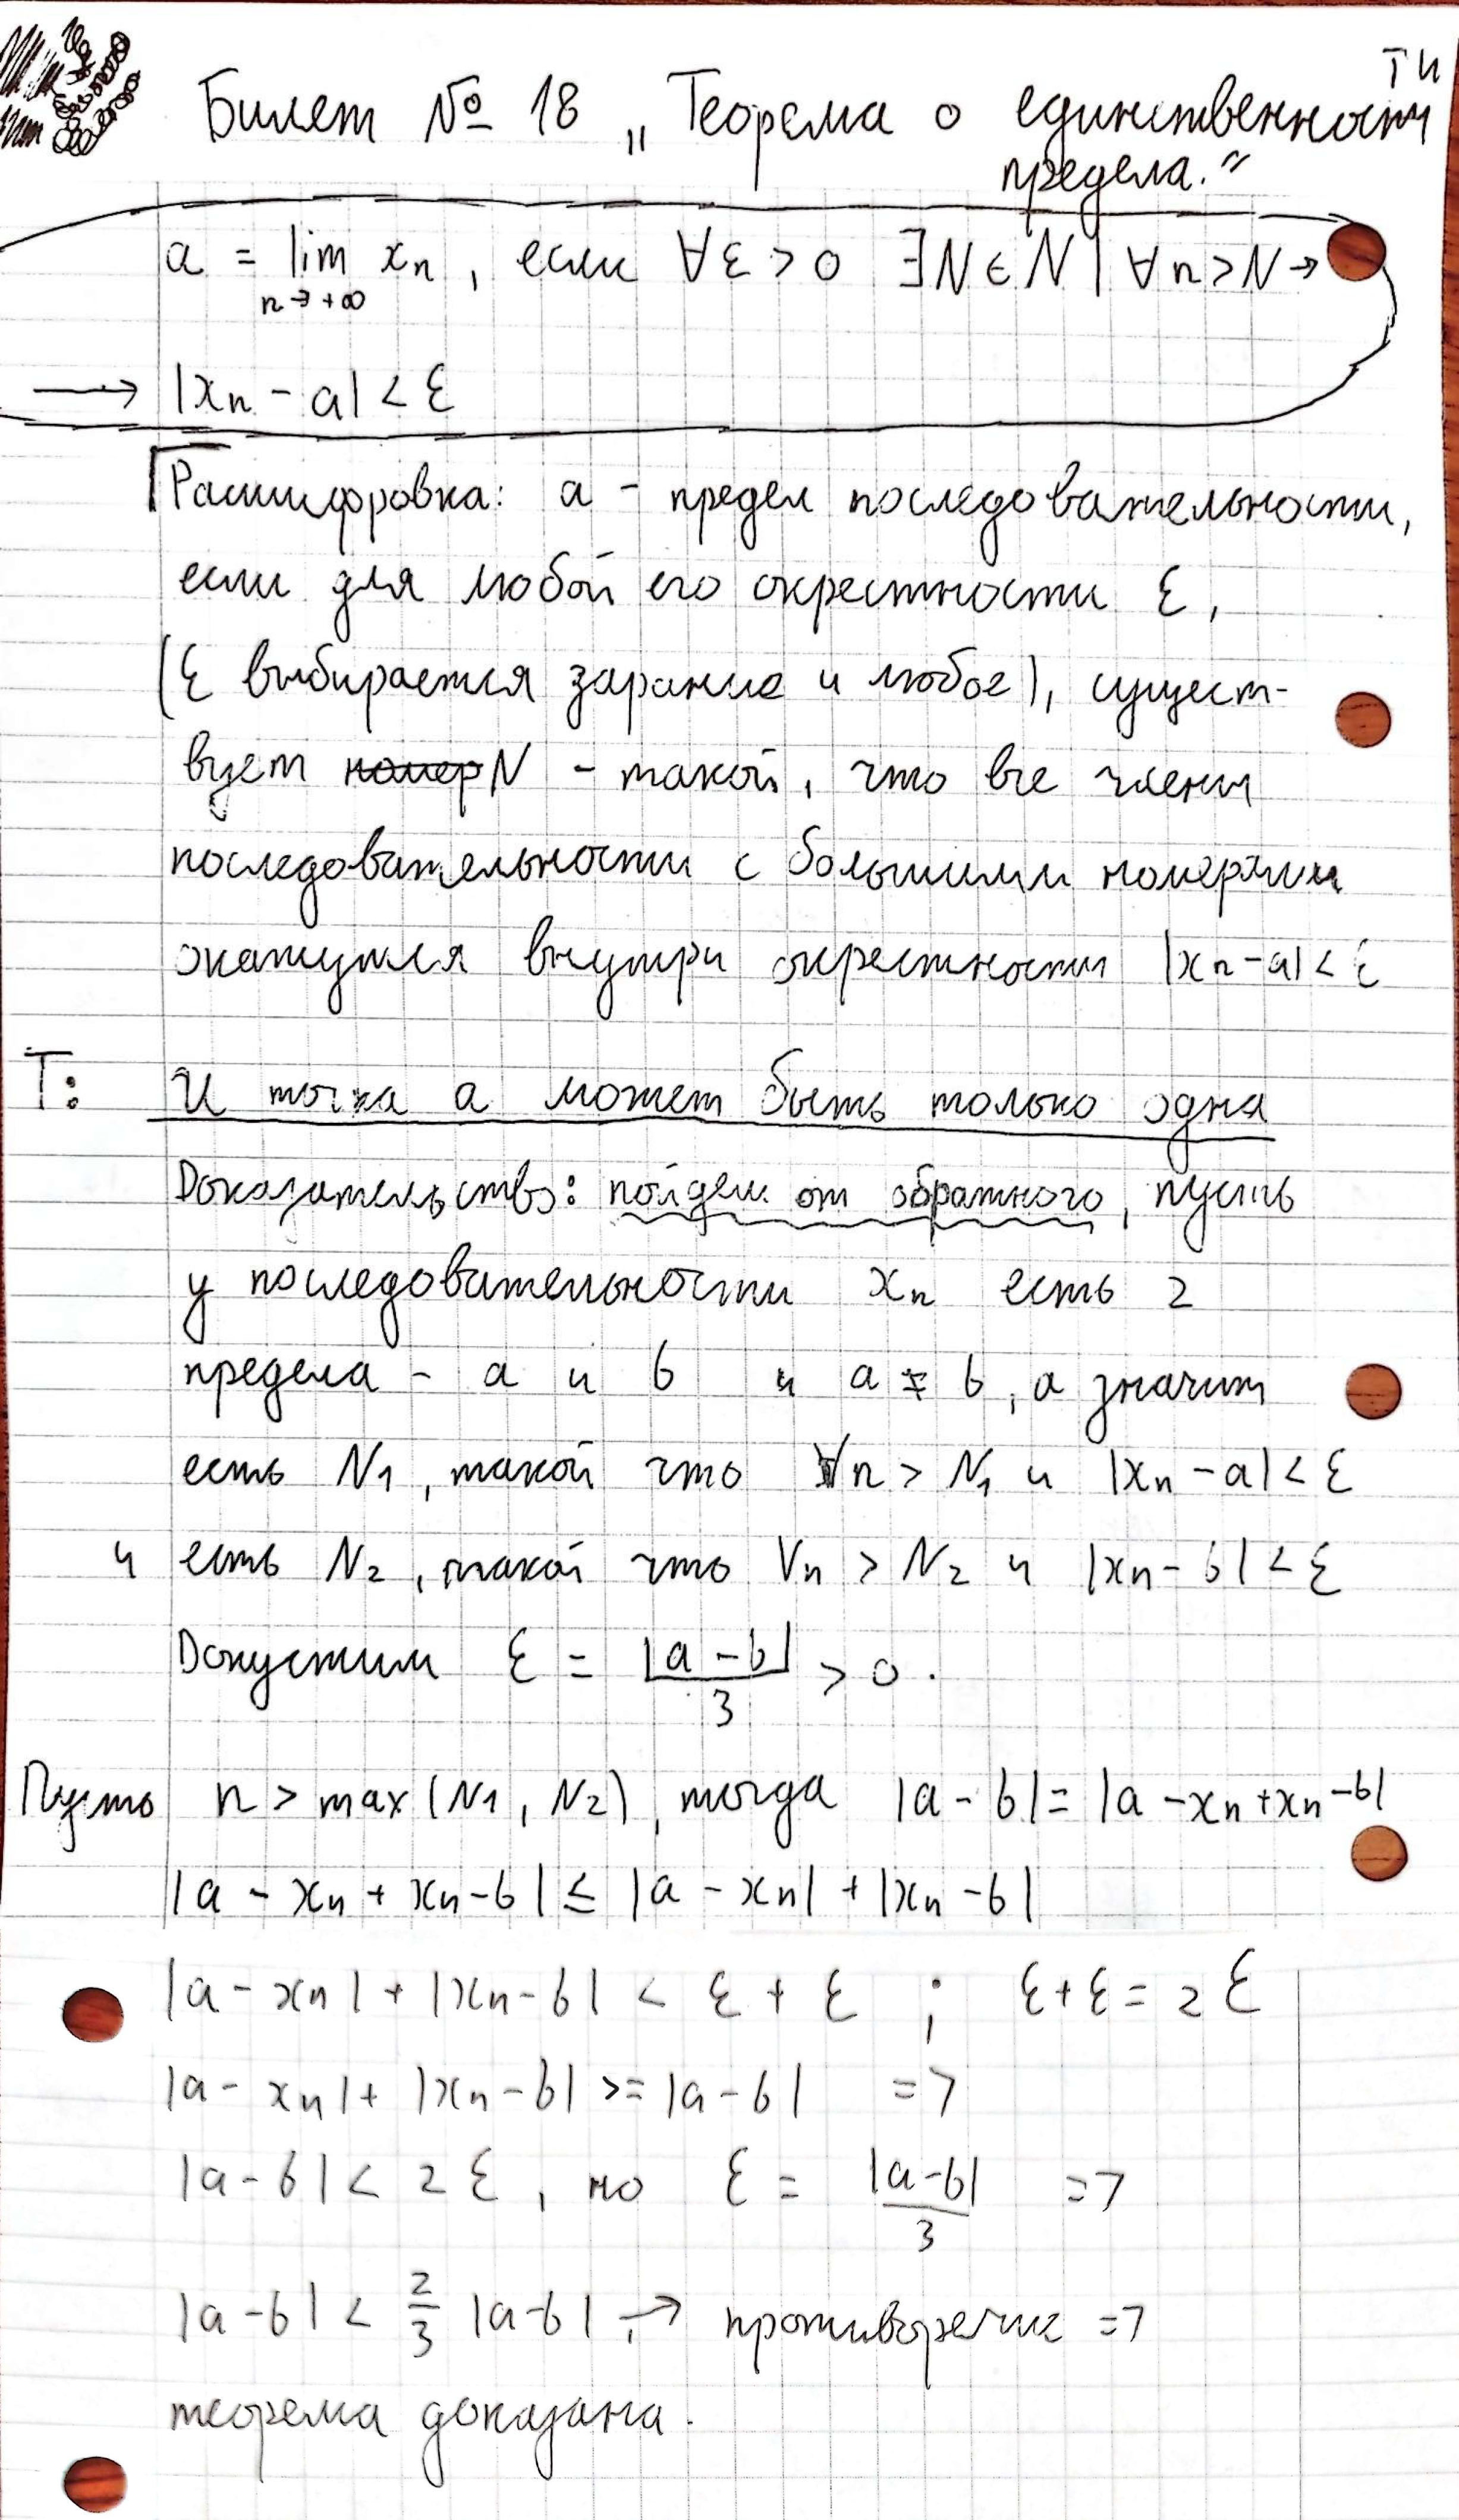 Билет № 18 „Теорема о единственности
предела."
a = lim xₙ, если ∀ε > 0 ∃N ∈ N | ∀n > N →
n → +∞
→ |xₙ - a| < ε
Расшифровка: a - предел последовательности,
если для любой его окрестности ε,
(ε выбирается зарание и любое), сущест-
вует номер N - такой, что все члены
последовательности с большими номерами
окажутся внутри окрестности |xₙ - a| < ε
Т: И точка a может быть только одна
Доказательство: пойдем от обратного, пусть
у последовательности xₙ есть 2
предела - a и b и a ≠ b, а значит
есть N₁, такой что ∀n > N₁ и |xₙ - a| < ε
и есть N₂, такой что ∀n > N₂ и |xₙ - b| < ε
Допустим ε = |a - b| / 3 > 0.
Пусть n > max(N₁, N₂), тогда |a - b| = |a - xₙ + xₙ - b|
|a - xₙ + xₙ - b| ≤ |a - xₙ| + |xₙ - b|
|a - xₙ| + |xₙ - b| < ε + ε ; ε + ε = 2ε
|a - xₙ| + |xₙ - b| >= |a - b| =>
|a - b| < 2ε, но ε = |a - b| / 3 =>
|a - b| < 2/3 |a - b| → противоречие =>
теорема доказана.